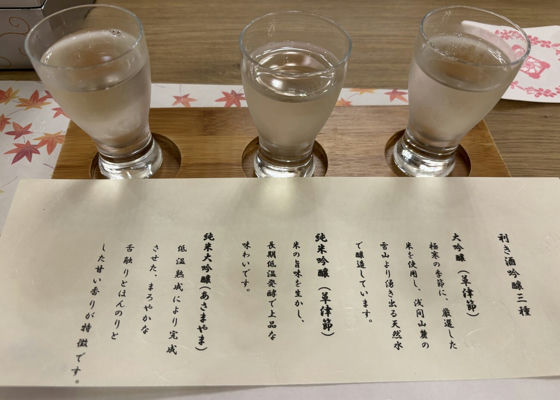 利き酒吟醸三種
大吟醸（草津節）
極寒の季節に、厳選した
米を使用し、浅間山麓の
雪山より湧き出る天然水
で醸造しています。
純米吟醸（草津節）
米の旨味を生かし、
長期低温発酵で上品な
味わいです。
純米大吟醸（あさまやま）
低温熟成により完成
させた、まろやかな
舌触りとほんのりと
した甘い香りが特徴です。